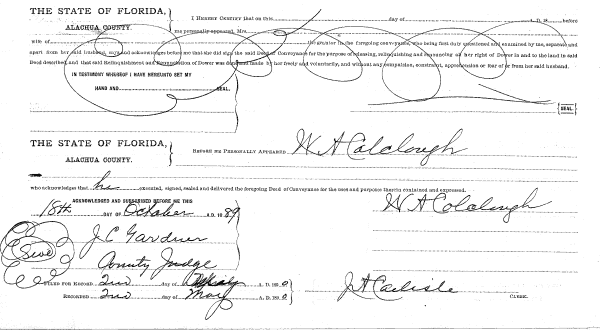 THE STATE OF FLORIDA,
ALACHUA COUNTY.
I HEREBY CERTIFY that on this day of A. D. 18 before
me personally appeared, Mrs.
wife of the grantor in the foregoing conveyance, who being first duly questioned and examined by me, separate and
apart from her said husband, says and acknowledges before me that she did sign the said Deed of Conveyance for the purpose of releasing, relinquishing and renouncing all her right of Dower in and to the land in said
Deed described, and that said Relinquishment and Renunciation of Dower was done and made by her freely and voluntarily, and without any compulsion, constraint, apprehension or fear of or from her said husband.
IN TESTIMONY WHEREOF I HAVE HEREUNTO SET MY
HAND AND SEAL.
[SEAL]
THE STATE OF FLORIDA,
ALACHUA COUNTY.
BEFORE ME PERSONALLY APPEARED W A Colclough
who acknowledges that he executed, signed, sealed and delivered the foregoing Deed of Conveyance for the uses and purposes therein contained and expressed.
ACKNOWLEDGED AND SUBSCRIBED BEFORE ME THIS
18th DAY OF October A. D. 1889
W A Colclough
J.C. Gardner
Seal
County Judge
FILED FOR RECORD 2nd day of May A. D. 1890
RECORDED 2nd day of May A. D. 1890
J A Carlisle CLERK.